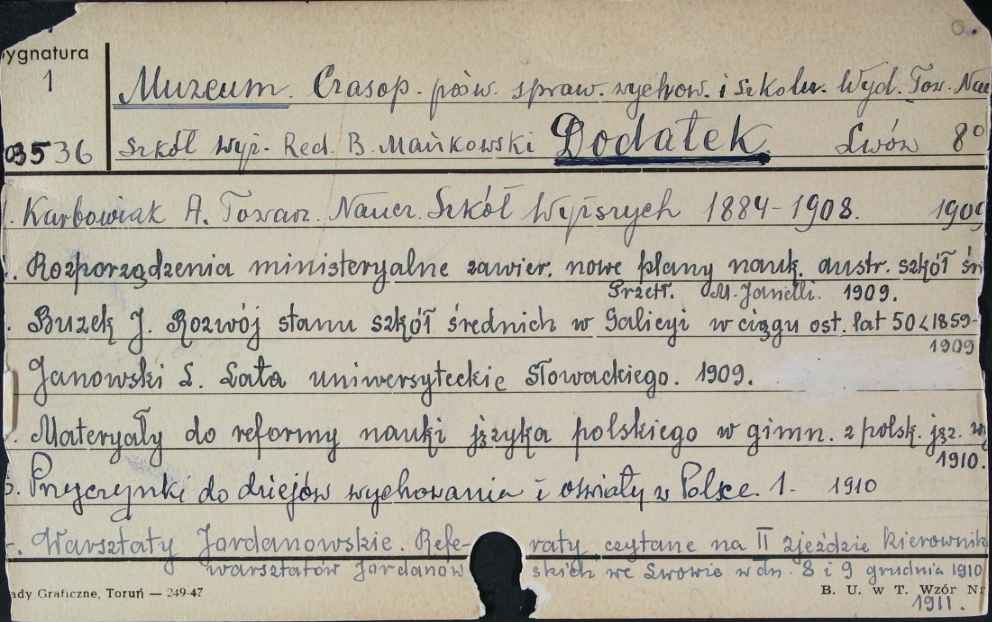 ygnatura
1
Muzeum. Czasop. pośw. spraw. wychow. i szkoln. Wyd. Tow. Nau
03536 Szkół wyż. Red. B. Mańkowski Dodatek. Lwów 8°
Karbowiak A. Towarz. Naucz. Szkół Wyższych 1884-1908. 1909
Rozporządzenia ministeryalne zawier. nowe plany nauk. austr. szkół śr
Przetł. M. Janelli. 1909.
Buzek J. Rozwój stanu szkół średnich w Galicyi w ciągu ost. lat 50 <1859-
1909
Janowski L. Lata uniwersyteckie Słowackiego. 1909.
Materyały do reformy nauki języka polskiego w gimn. z polsk. jęz.
1910.
Przyczynki do dziejów wychowania i oświaty w Polsce. 1. 1910
Warsztaty Jordanowskie. Refe- raty czytane na II zjeździe kierownik
warsztatów Jordanow skich we Lwowie w dn. 8 i 9 grudnia 1910
ady Graficzne, Toruń — 249-47 B. U. w T. Wzór Nr
1911.